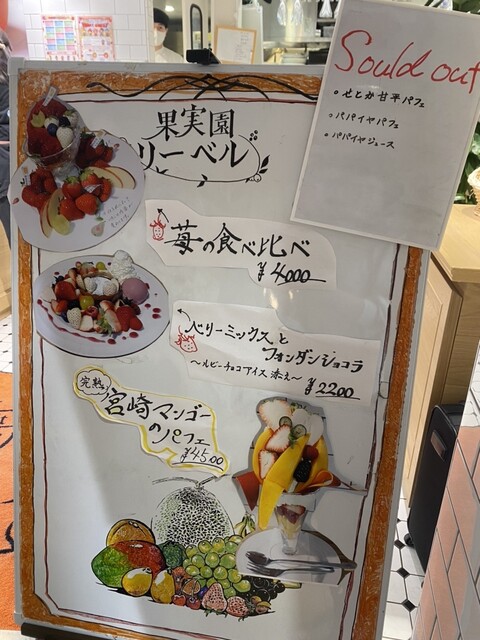 Sould out
○せとか甘平パフェ
○パパイヤパフェ
○パパイヤジュース
果実園
リーベル
苺の食べ比べ
¥4000
ベリーミックスと
フォンダンショコラ
～ルビーチョコアイス添え～
¥2200
完熟
宮崎マンゴー
のパフェ
¥4500